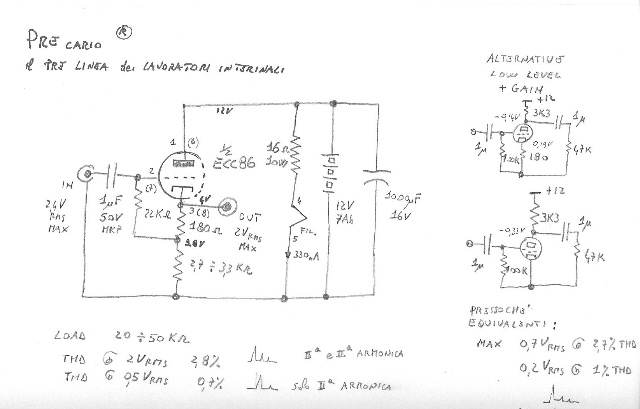 PRE CARIO ®
il PRE LINEA dei LAVORATORI INTERINALI
12V
1 (6)
½ ECC86
2
(7)
IN
2,4V
RMS
MAX
1µF
50V
MKP
22KΩ
4V
3(8)
180Ω
3,8V
2,7 ÷ 3,3 KΩ
OUT
2VRMS
MAX
16Ω
10W
4
FIL.
5
330mA
12V
7Ah
1000µF
16V
LOAD 20 ÷ 50 KΩ
THD @ 2VRMS 2,8% IIª e IIIª ARMONICA
THD @ 0,5VRMS 0,7% solo IIª ARMONICA
ALTERNATIVE
LOW LEVEL
+ GAIN
+12
3K3
1µ
-0,4V
1µ
0,19V
180
47K
+12
3K3
1µ
-0,33V
1µ
100K
47K
PRESSOCHE'
EQUIVALENTI:
MAX 0,7VRMS @ 2,7% THD
0,2VRMS @ 1% THD